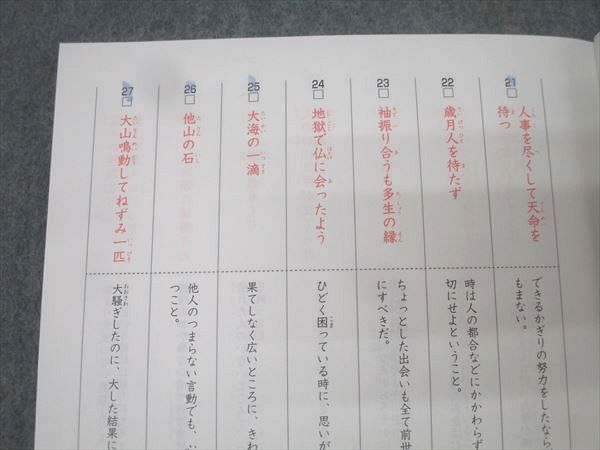 21
人事を尽くして天命を
待つ
できるかぎりの努力をしたなら
もまない。
22
歳月人を待たず
時は人の都合などにかかわらず
切にせよということ。
23
袖振り合うも多生の縁
ちょっとした出会いも全て前世
にすべきだ。
24
地獄で仏に会ったよう
ひどく困っている時に、思いが
25
大海の一滴
果てしなく広いところに、きわ
26
他山の石
他人のつまらない言動でも、心
つこと。
27
大山鳴動してねずみ一匹
大騒ぎしたのに、大した結果に